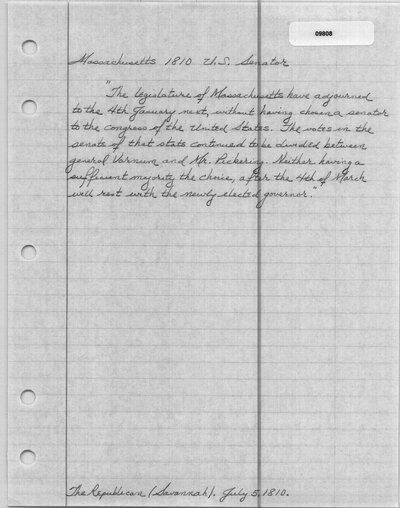 09808
Massachusetts 1810 U.S. Senator
"The legislature of Massachusetts have adjourned
to the 4th January next, without having chosen a senator
to the congress of the United States. The votes in the
senate of that state continued to be divided between
general Varnum and Mr. Pickering. Neither having a
sufficient majority the choice, after the 4th of March
will rest with the newly elected governor."
The Republican (Savannah). July 5, 1810.